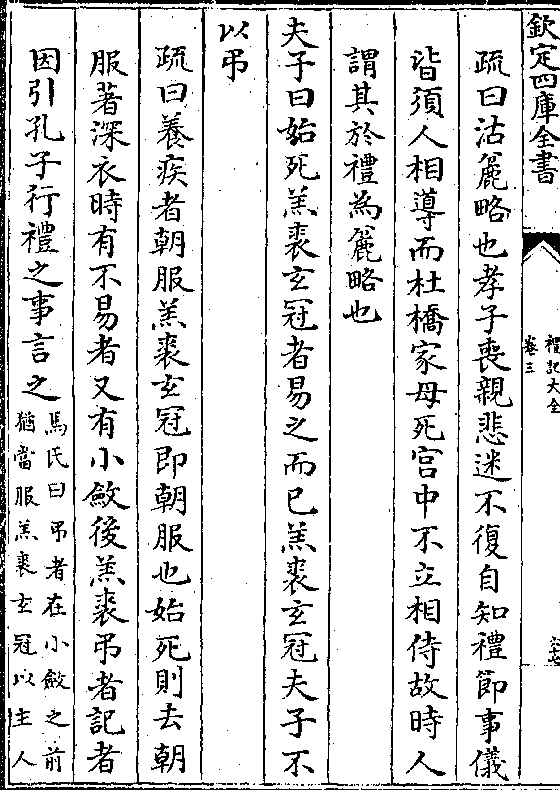 欽定四庫全書
禮記大全
卷三
疏曰沽麄略也孝子喪親悲迷不復自知禮節事儀
皆須人相導而杜橋家母死宫中不立相侍故時人
謂其於禮為麄略也
夫子曰始死羔裘玄冠者易之而已羔裘玄冠夫子不
以弔
疏曰養疾者朝服羔裘玄冠即朝服也始死則去朝
服著深衣時有不易者又有小斂後羔裘弔者記者
因引孔子行禮之事言之
馬氏曰弔者在小斂之前
猶當服羔裘玄冠以主人